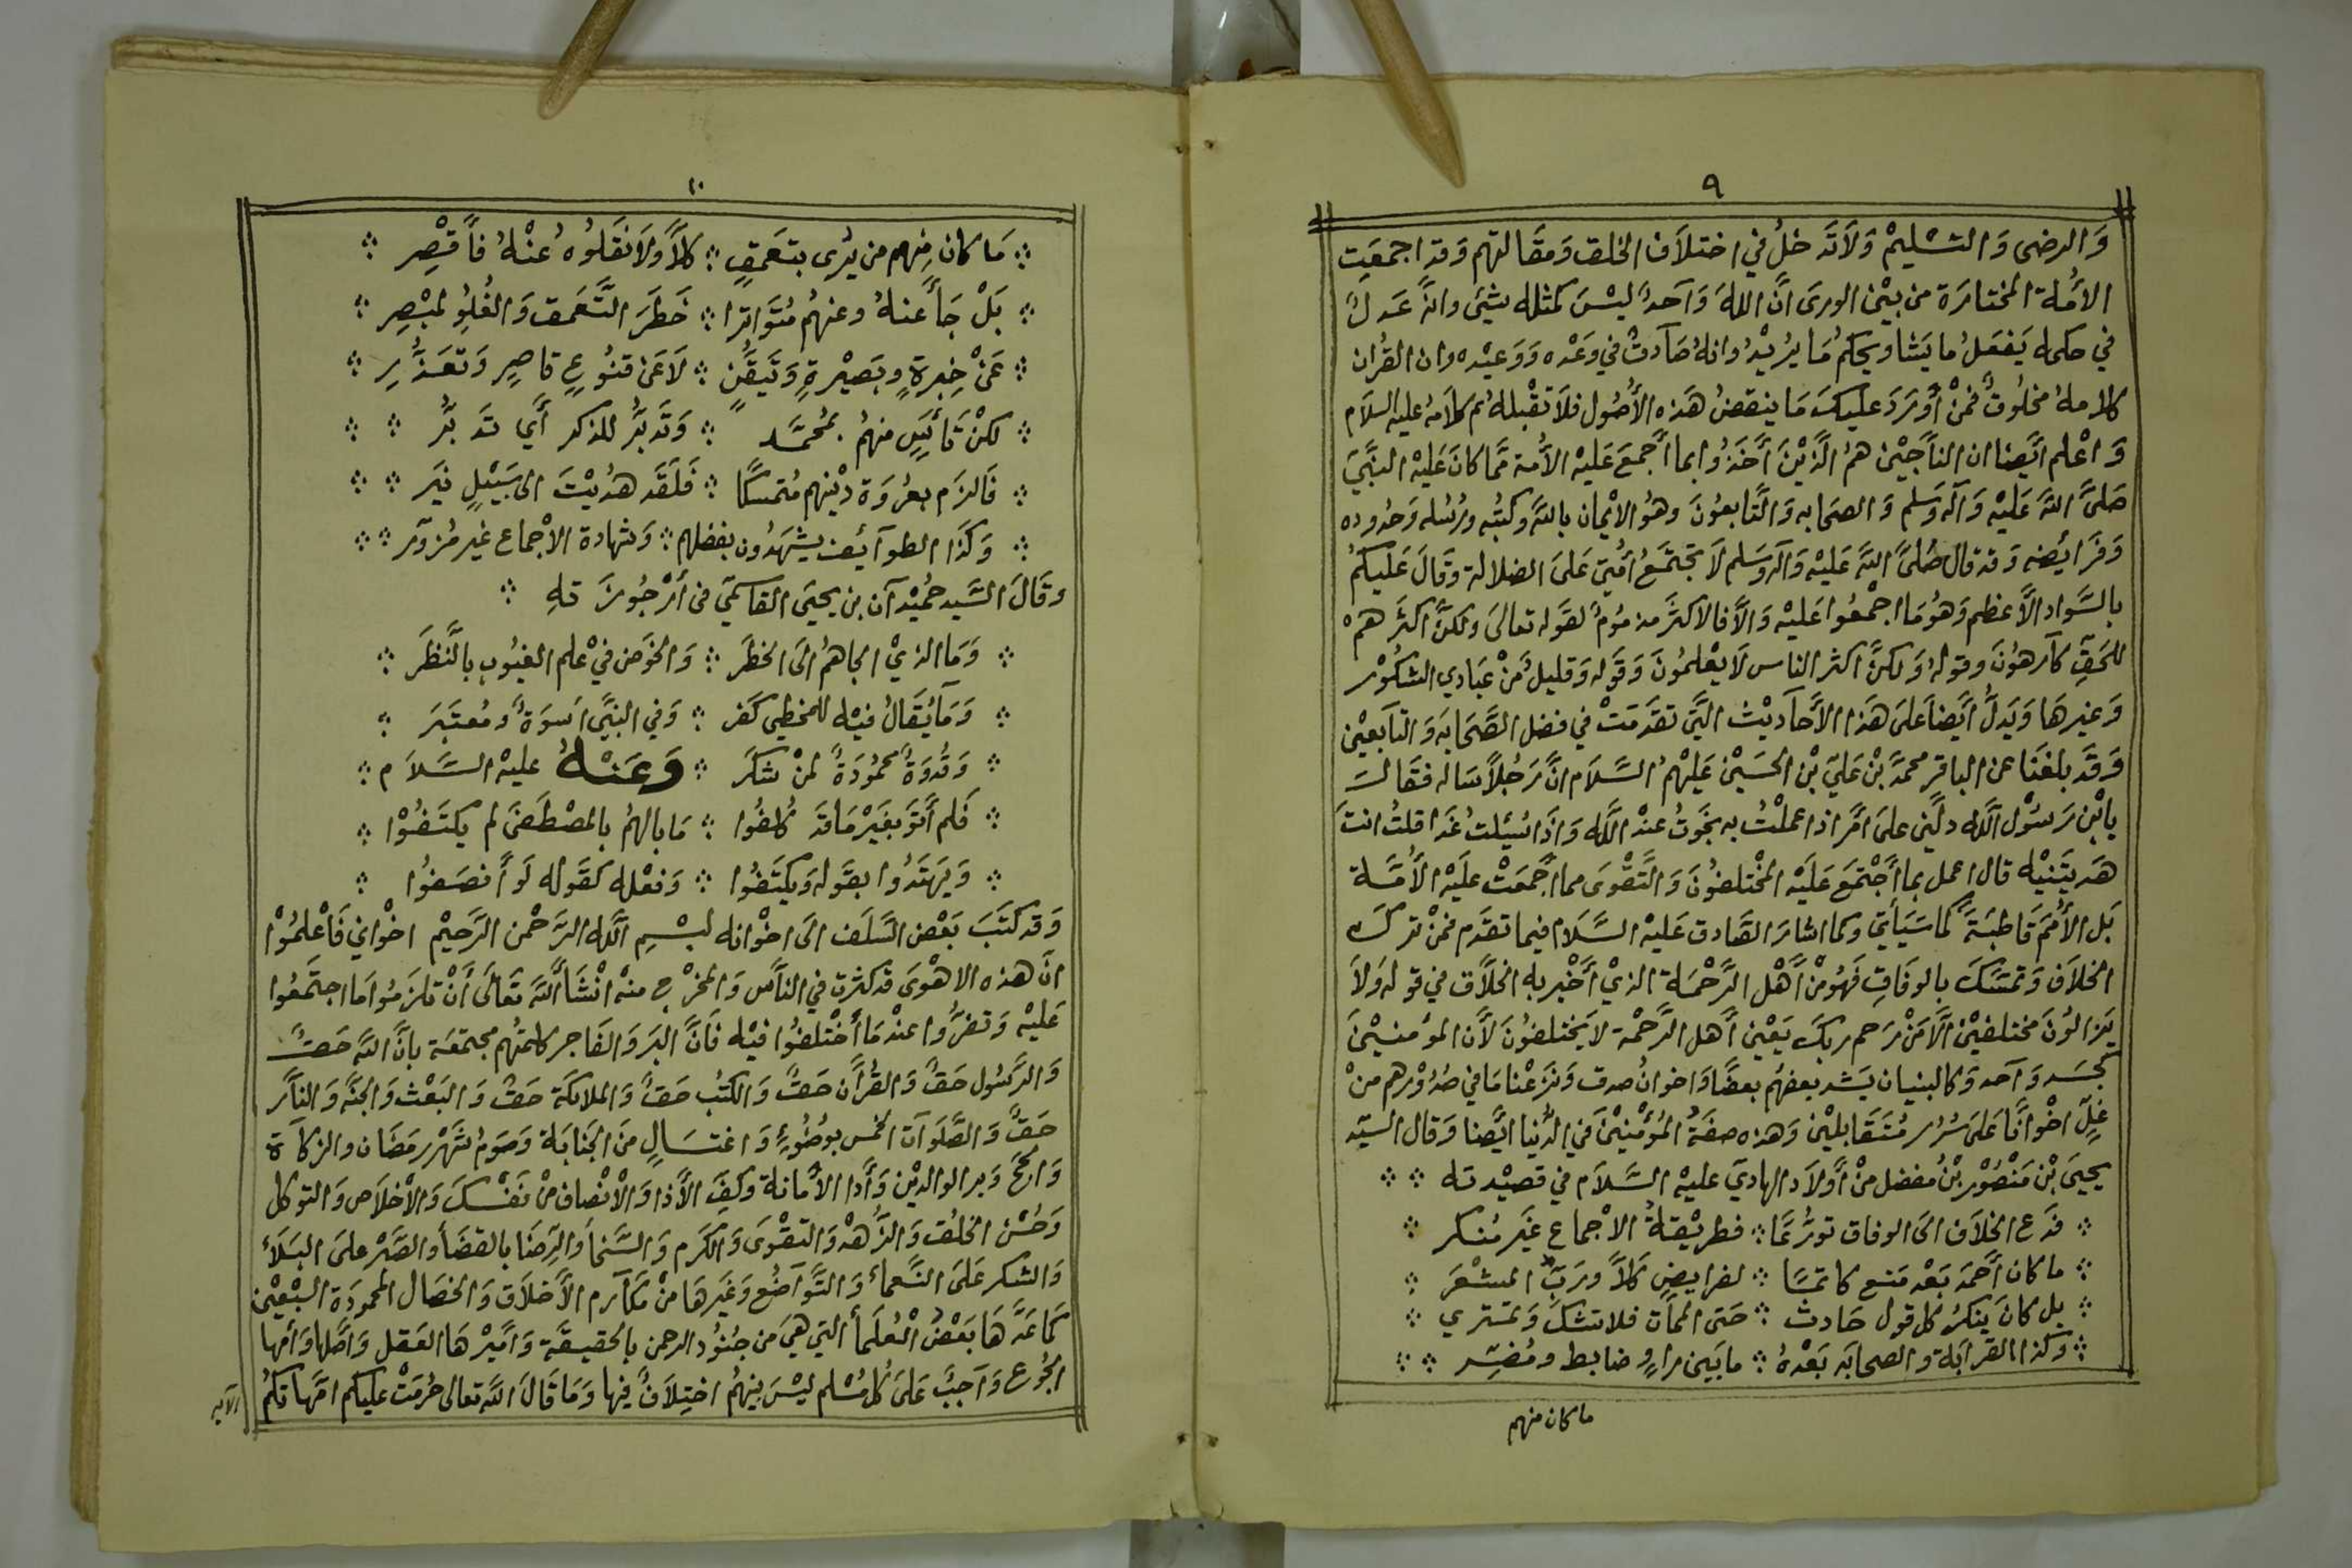 ٩
وَالرضى وَالتسْليمْ وَلاَتَدخلُ في اختلاَف الخلق وَمقَالتهم وَقد اجمعَت
الأُمة المختارَة من بيْن الورى انَّ اللهَ وَآحدٌ ليْسَ كمثله شيئ وانَّهُ عَدلٌ
في حكمه يَفعَلُ مايَشا ويحكمُ مَا يرُيْدُ وانهُ صَآدقٌ في وَعْده وَوَعيْده وان القُران
كلامهُ مخلُوقٌ فمنْ أَوْرَدَ عليكَ مَا ينقضُ هَذه الأُصُول فلاَ تقْبلهُ تم كلاَمهُ عليه السلاَم
وَاعْلم ايَّضا ان الناَّجيْن همُ الَّذيْنَ أَخَذُوا بما أَجمعَ عَليْه الأُمة ممَّا كانَ عَليْه النبَّيَ
صَلىَّ اللهَ عَليْه وَآله وَسَلم وَالصحَابه وَالتَّابعُونَ وهوُ الايْمان باللهَ وكتبُه ورُسُله وَحدُوده
وَفرَايُضه وَقد قال صَلىَّ اللهَ عَليْه وَآله وسَلم لاَ تجتمَعُ أمُتيَ عَلىَ الضلالة وَقالَ عَليكمُ
بالسَّواد الأَعظم وَهوُمَا اجْمعُوا عَليْه وَالاَّ فالاكثرَ مذمُومٌ لقوَله تعالىَ ولكنَّ اكثرَهمُ
للحَقِ كآرهوُنَ وقولهُ وَلكنَّ اكثر الناس لاَ يعْلمُونَ وَقوَله وَقليلٌ مَنْ عبَادي الشكوُر
وَغيرهَا وَيَدلُّ ايَضاً عَلىَ هَذا الأَحآديْث التَّي تقدَمَتْ في فضل الصَّحَابَه وَالتاَبعيْن
وَقَد بلغنَا عن الباقر محمدَ بْن عَليَ بْن الحسَيْن عَليْهمُ السَّلاَم انَّ رَجُلاً سَاله فقَالَ
يابْن رَسوُل اللَّه دلَّني علىَ امَّر اذا عملْتُ به نجَوتُ عنْدَ اللَّه وَاذَا سُئلتُ غَدا قلتُ انتَ
هَديتَنيْه قال اعمل بما أَجْتمَعَ عَليَه المخْتلفوُنَ وَالتَّقْوىَ مما أجَمعَتْ عليَه الأُمَّة
بَل الأُممَ قاطبَةَ كما سَيأتيَ وكما اشارَ الصَّادق عَليْه السَّلاَم فيما تقدَم فمنْ ترَكَ
الخلاَف وَتمسَّكَ بالوفاقِ فَهوُ منْ أَهْل الرَّحْمَة الذيْ أَخْبر به الخلاَّق في قوله وَلاَ
يَزالوُنَ مختلفيْن الاَّ مَنْ رَحم ربكَ يَعْيني أَهل الرَّحْمة لاَ يختلفوُنَ لأَن المؤمنيْنَ
كجَسَد وَآحد وَكالبنيان يَشد بعضهمُ بعضًا وَاخوانُ صدق وَنزَعْنا مَا في صُدُوْرهم منْ
غلّ اخْواناً عَلىَ سُرُر مُتقَابليْن وَهذه صفةُ المُؤمنيْنَ في الدُّنيا ايَّضا وَقال السيّد
يحيىَ بْن مَنْصُوْر بْنُ مفضل منْ أوَلاَد الهاديَ عليْه السَّلاَم في قصيْدته
فدَع الخلاَف الىَ الوفاق تورُّعًا فطريْقةُ الاْجماع غيَر مُنكر
ما كان أَحمدَ بَعْد مَنع كاتمًا لفرايضٍ كَلاَّ ورَبّ المشْعَر
بل كانَ ينكرُ كل قول حَادث حَتى الممَات فلاتشكَ وَتمتري
وكذا القرابَة والصحابَه بَعْدهُ مابَين رَاوٍ ضابط ومُفَسّر
ما كان منهم
١٠
مَا كان منهم من يرُى بتعَمقٍ كلاَّ ولاَ نقَلوُهُ عنْهُ فاَقْصِر
بَلْ جَآ عنهُ وعنهُم مُتوَاترا خَطَرَ التَّعَمق وَالغُلوُ لمبْصِر
عَنْ خبرةٍ وبَصيْرةٍ وَتَيقَُنٍ لاَ عَن قنُوعٍ قاصِرٍ وَتعَذُّرِ
لكنْ تأَسَيٍ منهمُ بمُحمَّد وَتدَبُّر للذكر أَي تدَبُّر
فَالزَم بعرُوَة ديْنهم مُتمسكًا فَلَقَد هدُيْتَ الى سَبَيْلٍ نيَر
وَكذَا الطوآئف يشهَدُون بفضلهم وَشهادة الاْجماع غير مُزوَّر
وقَالَ السَّيد حمُيْدآن بن يحيَى القاسميَ في أَرْجوُزَته
وَمَا الذيْ الجاهمُ الىَ الخطَر وَالخوَض فيْ علم الغيُوب بالَّنظَر
وَمَآ يُقَالُ فيْه للمخطي كفر وَفي النبَّيِ اسوَةٌ وُمُعتَبرَ
وَقدُوَةٌ محمُودَةٌ لمنْ شكرَ وَعَنْهُ عليْه السَّلاَم
فَلم أَتوَ بغَيْر مَا قد كلُفُوا مَا بالهمُ بالمصْطَفىَ لم يكتَفُوْا
وَيَهتَدُوا بقَوله وَيكتَفُوا وَفعْله كقَوله لَو أَنصَفُوا
وَقد كتَبَ بَعْض السَّلَف الىَ اخوْانه بسْم اللَّه الرَّحْمن الرَّحيْم اخوْاني فَاعْلمُوْا
انَّ هَذه الاهْوىَ قد كثرتَ في الناَّس وَالمخرْج منهْ انْشَأ اللهَ تعَالىَ أَنْ تلزَمُوا مَا اجتمَعُوا
عَليْه وَتفرُّوا عندْ مَا أَخْتلفوُا فيْه فَانَّ البرَ وَالفَاجر كلمتُهم مجتمعَة بانَّ اللهَ حَقٌ
وَالرَّسُول حَقٌ وَالقُرآن حَقٌ وَالكتُب حَقٌ وَالملائكَة حَقٌ وَالبَعْث وَالجنَّة وَالناَّر
حَقٌ وَالصَّلوَآت الخمْس بوُضُوءٍ وَاغتسَالٍ منَ الجنَابَة وَصَومُ شَهْر رمَضَان وَالزكآة
وَالحجَ وَبر الوالديْن وَأَدا الأَمانة وَكفَ الأَذا وَالاْنْصاف منْ نَفْسكَ وَالأخلاَص وَالتوكل
وَحُسْن الخلُق وَالزُّهدْ وَالتقْوىَ وَالكرَم وَالسَّخا وَالرّضَا بالقضَأ والصَّبْر علىَ البَلأَ
وَالشكر عَلىَ النَّعماءْ وَالتَّوآضُع وَغَيْرهَا منْ مكَآرم الأَخلاَق وَالخصَال المحمودَة السَّبْعيْن
كمَا عَدَّهَا بَعْضُ الْعُلمَأ التي هيَ من جنُوُد الرحمن بالحقيقَة وَأميْرهَا العَقل وَأصَّلهَا وَامُهَا
الجوُع وَآجبٌ عَلىَ كلُ مُسْلم ليْسَ بيْنهمُ اختلاَفٌ فيْها وَمَا قَالَ اللهَ تعالى حُرمَتْ عليَكم امَّهاتكمُ
الآيه